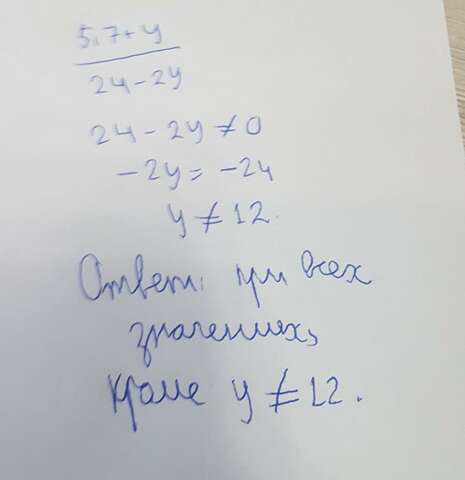 5,7+y
24-2y
24-2y≠0
-2y=-24
y≠12.
Ответ: при всех
значениях,
кроме y≠12.